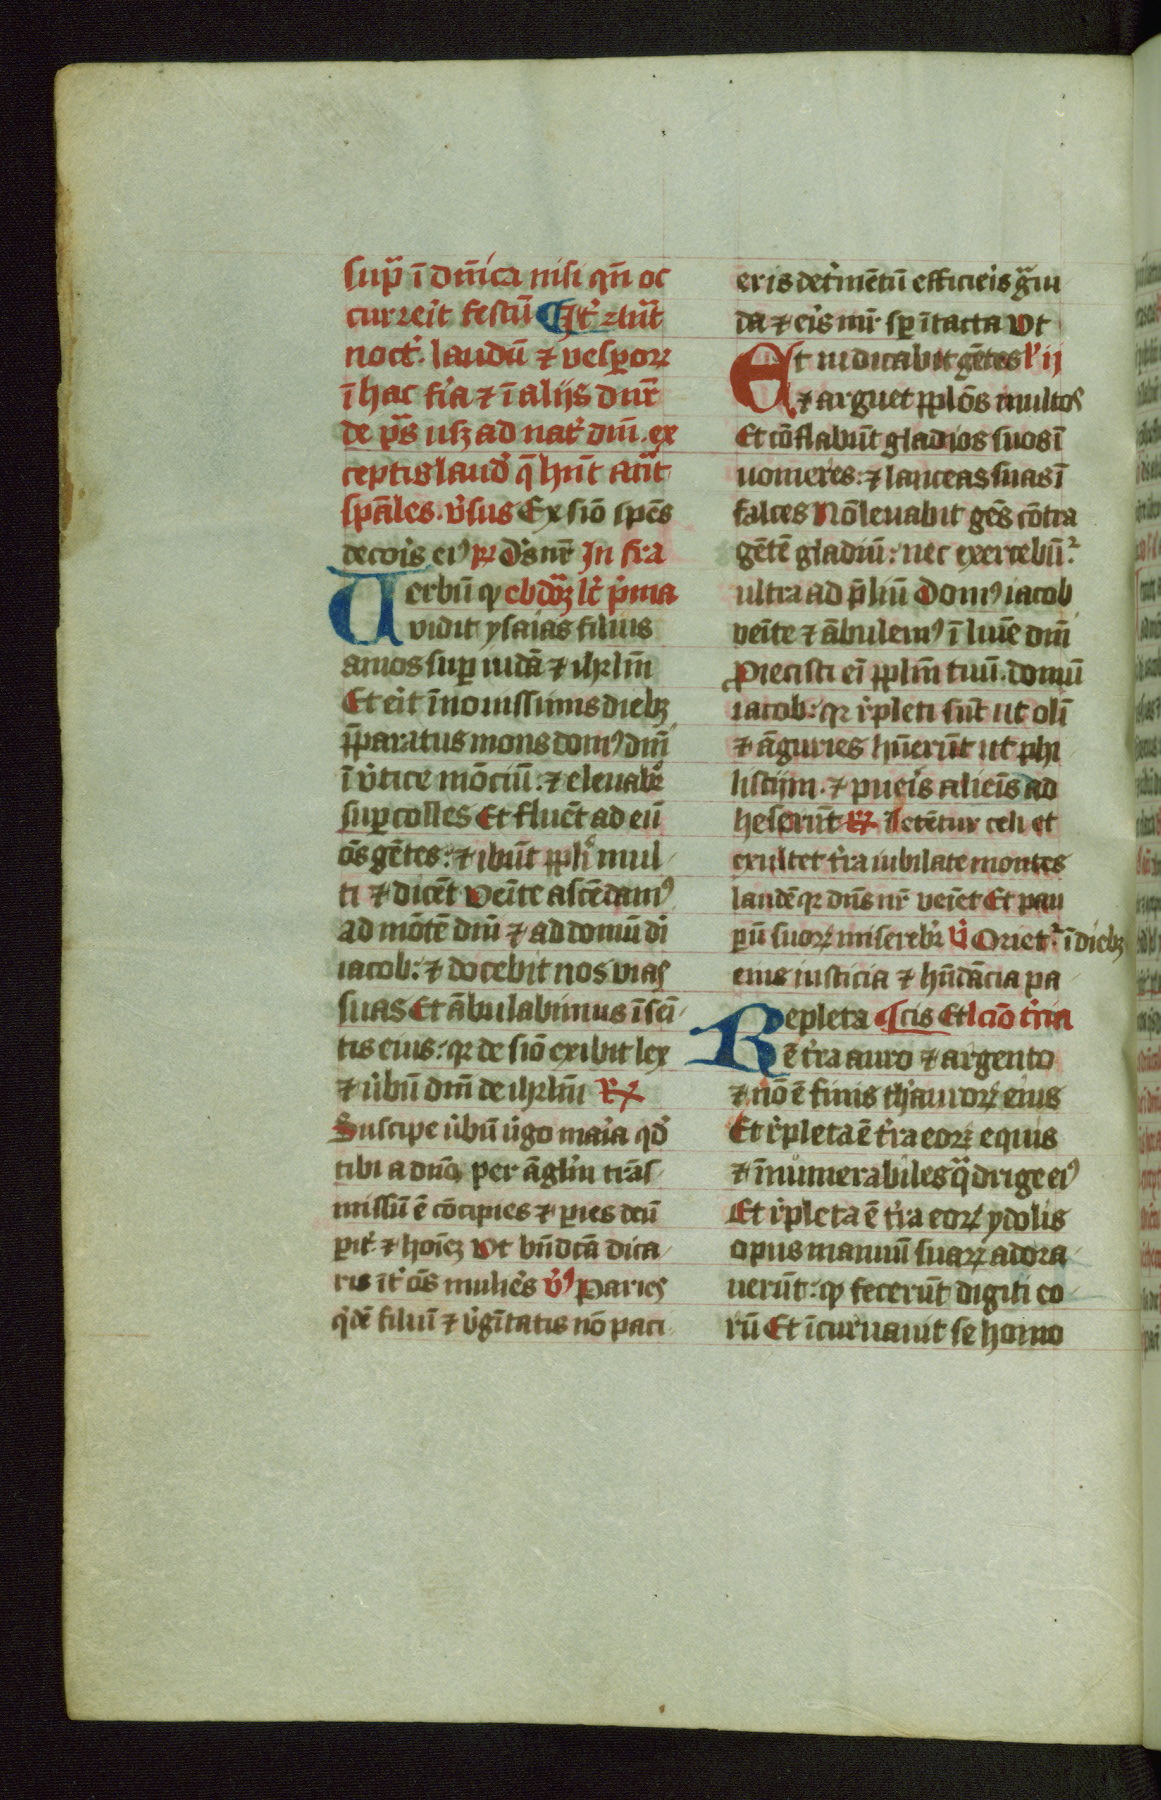 sup̄ ī dn̄ica nisi qn̄ oc
currerit festū
noct̉. laudū ⁊ vesꝑoꝝ
ī hac fīa ⁊ ī aliis
de ps̄ usꝫ ad nat̉ dn̄i. ex
ceptis laud̉ q̄ hn̄t
sp̄ales. v̉sus Ex siō spēs
decois̉ ei⁹ ꝶ D̉s nr̄ In fīa
Verbū ꝙ ebdōꝫ lc̄ p̉ma
vidit ysaias filius
amos suꝑ iudā ⁊ ihrlm̄
Et erit ī nouissimis diebꝫ
p̄paratus mons dom⁹ dn̄i
ī v̉tice mōciū: ⁊ eleuabr̉
suꝑ colles Et fluēt ad eū
om̄s gētes: ⁊ ibūt ppl̄i mul
ti ⁊ dicēt Veīte ascēdam⁹
ad mōtē dn̄i ⁊ ad domū di
iacob: ⁊ docebit nos vias
suas Et ābulabimus ī sēi
tis eius: qꝛ de siō exibit lex
⁊ v̉bū dn̄i de ihrlm̄ ꝶ
Suscipe v̉bū v̉go maria qd̉
tibi a dn̄o per āgl̄m trās
missū ē cōcipies ⁊ paries deū
parit̉ ⁊ hoīeꝫ Vt bn̄dcā dica
ris īt̉ om̄s mulieres v̉⁹ Paries
qͥdē filiū ⁊ v̉gītatis nō paci
eris det̉mētū efficieris gͣui
da ⁊ eris mr̄ sꝑ ītacta Vt
Et iudicabit gētes lͨ ij
⁊ arguet pplōs multos
Et cōflabūt gladios suos ī
uomeres: ⁊ lanceas suas ī
falces Nō leuabit gēs cōtra
gētē gladiū: nec exercebūt̉
ultra ad p̄liū Dom⁹ iacob
veīte ⁊ ābulem⁹ ī lūie dn̄i
Proiecisti ei pplm̄ tuū. domū
iacob: qꝛ r̉pleti sūt ut olī
⁊ āguries hūerūt ut phi
listiim. ⁊ pueris alieīs ad
heserūt ꝶ Letētur celi et
exultet t̉ra iubilate montes
laudē qꝛ dn̄s nr̄ veīet Et pau
perū suoꝝ miserebr̉ v̉ Oriet̉ ī diebꝫ
eius iusticia ⁊ hn̄dācia pa
Repleta cis Et lciō t̉cia
ē t̉ra auro ⁊ argento
⁊ nō ē finis thauroꝝ eius
Et r̉pleta ē t̉ra eoꝝ equis
⁊ īnumerabiles qͣdrige ei⁹
Et r̉pleta ē t̉ra eoꝝ ydolis
opus manuū suaꝝ adora
uerūt: ꝙ fecerūt digiti eo
rū Et īcuruauit se homo